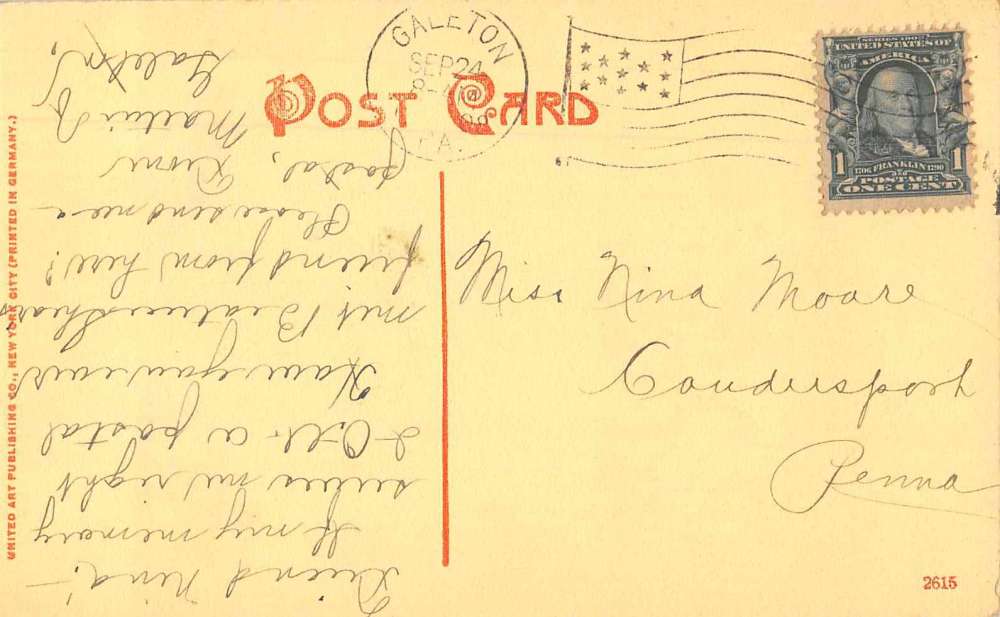 POST CARD
GALETON
SEP 24
PA.
SERIES 1902
UNITED STATES OF
AMERICA
1 1
1706 FRANKLIN 1790
POSTAGE
ONE CENT
Friend Nina:—
If my memory
serves me right
a postal
Have you ever
met Beatrice
friend from here?
Please send me a
postal,
Galeton,
Miss Nina Moare
Coudersport
Penna
UNITED ART PUBLISHING CO., NEW YORK CITY (PRINTED IN GERMANY.)
2615